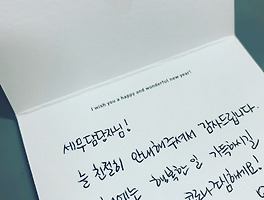 I wish you a happy and wonderful new year!
세무담당자님!
늘 친절히 안내해주셔서 감사드립니다.
행복한 일 가득하시길